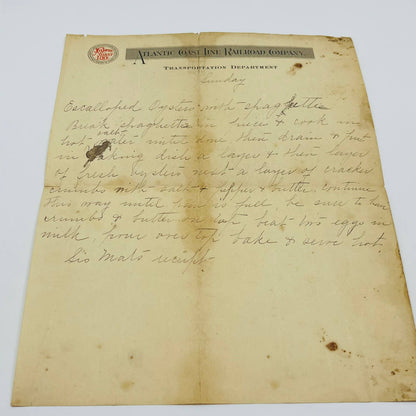 Atlantic Coast Line Railroad Company.
Transportation Department
Sunday
Escalloped Oysters with spaghetti
Break spaghetti in pieces & cook in
hot salt water until done then drain & put
in baking dish a layer & then layer
of fresh oysters next a layer of cracker
crumbs with salt & pepper & butter continue
this way until pan is full, be sure to have
crumbs & butter on top, beat eggs in
milk, pour over top bake & serve hot.
Sis Mat's receipt